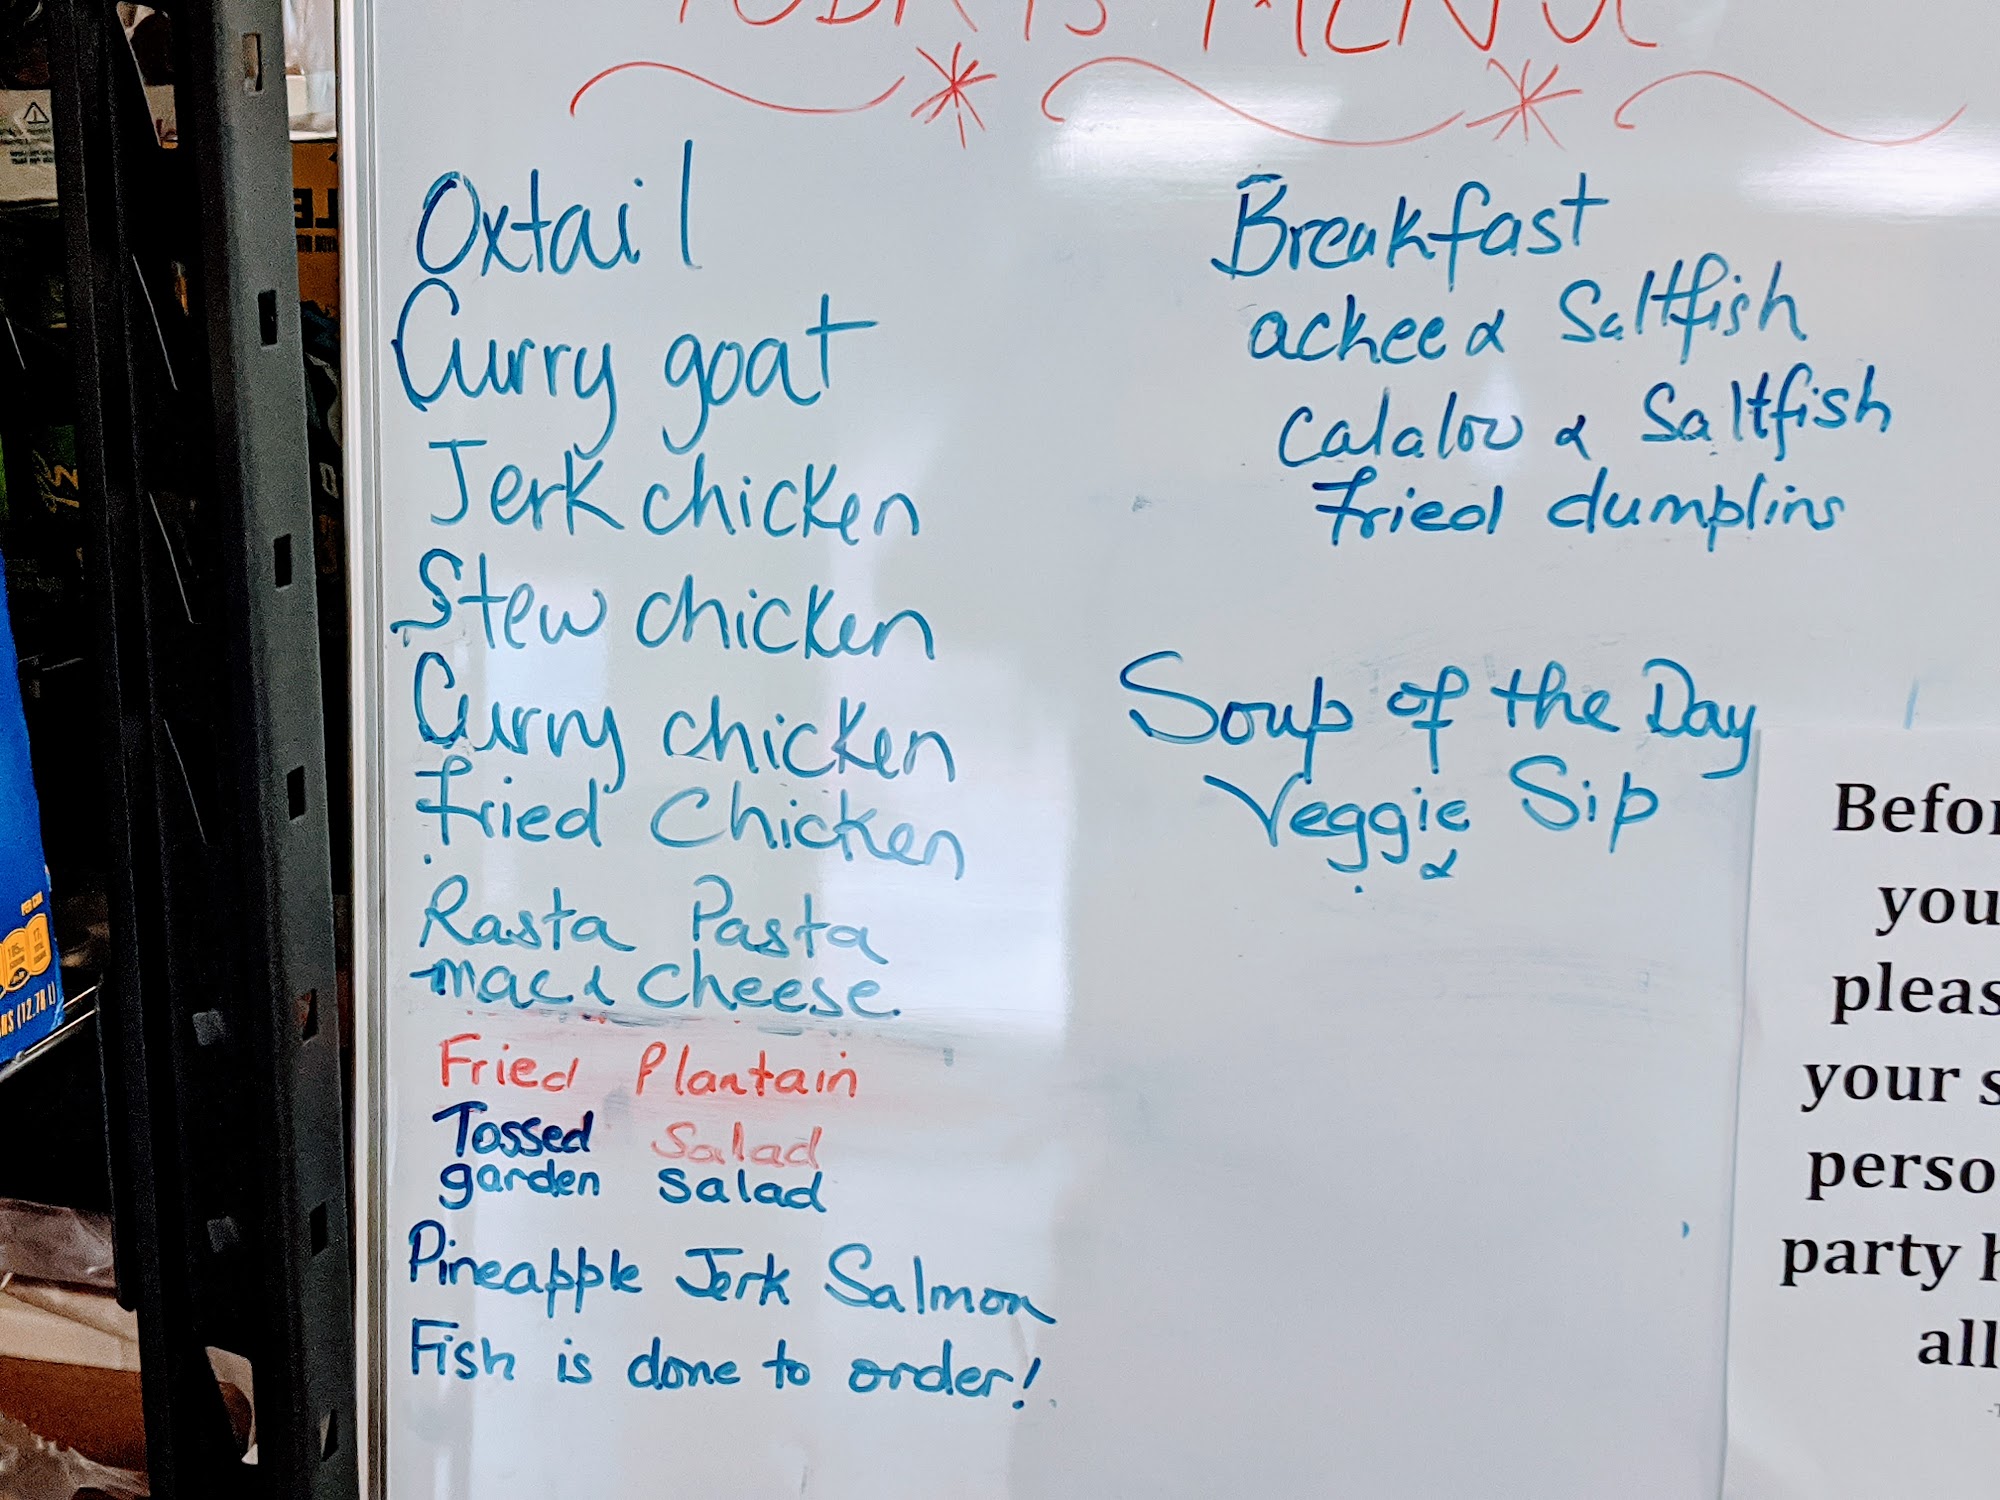 TODAY'S MENU
Oxtail
Curry goat
Jerk chicken
Stew chicken
Curry chicken
Fried Chicken
Rasta Pasta
mac & cheese
Fried Plantain
Tossed Salad
garden salad
Pineapple Jerk Salmon
Fish is done to order!
Breakfast
ackee & Saltfish
Calalou & Saltfish
Fried dumplins
Soup of the Day
Veggie Sip
&
Befor
you
pleas
your s
perso
party h
all
PER CAN